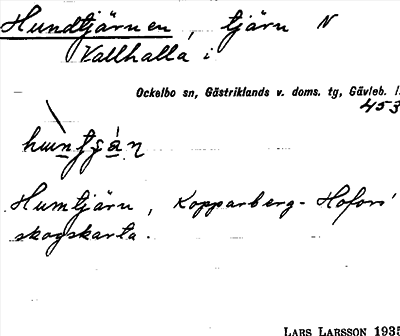 Hundtjärnen, tjärn N
Vallhalla i
Ockelbo sn, Gästriklands v. doms. tg, Gävleb. l.
453
Humtjärn, Kopparberg-Hofors
skogskarta.
LARS LARSSON 1935